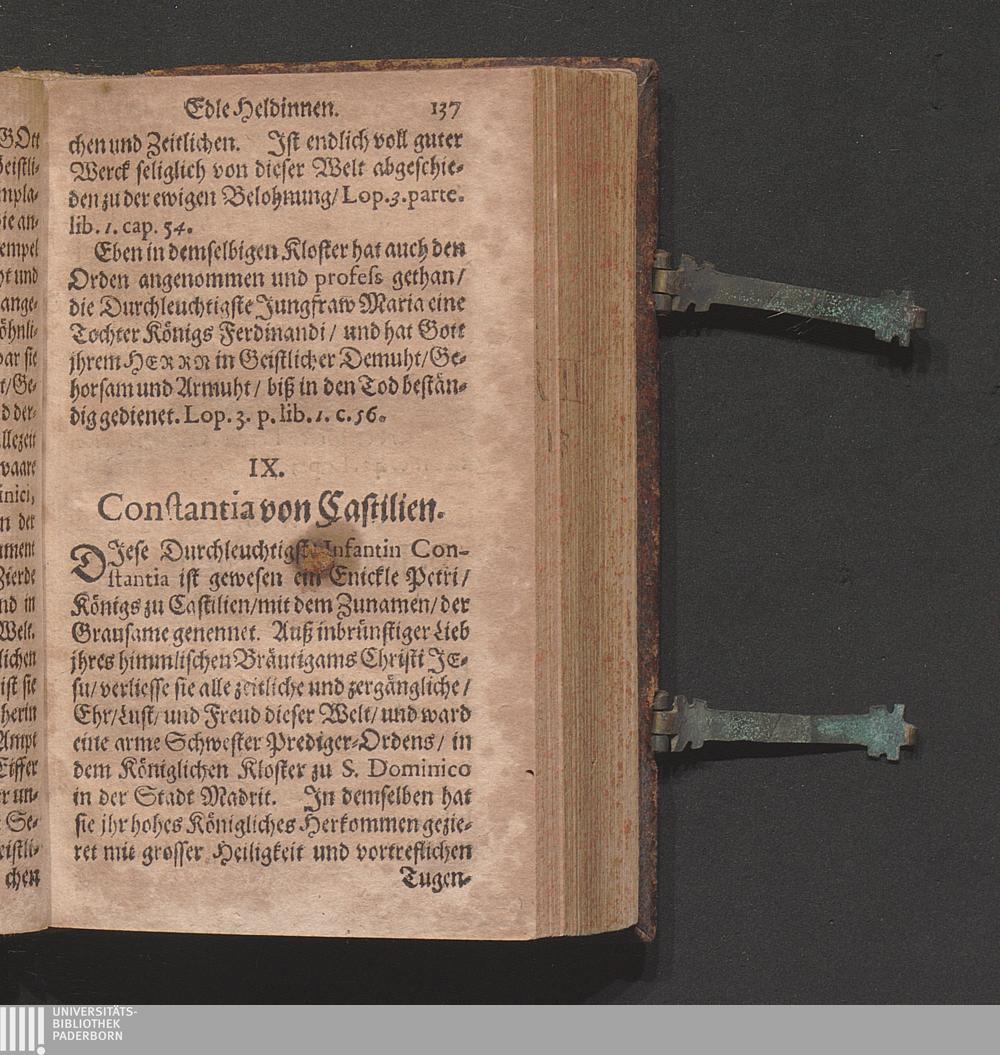 Edle Heldinnen. 137
chen und Zeitlichen. Ist endlich voll guter
Werck seliglich von dieser Welt abgeschie-
den zu der ewigen Belohnung/ Lop. 3. parte.
lib. 1. cap. 54.
Eben in demselbigen Kloster hat auch den
Orden angenommen und profess gethan/
die Durchleuchtigste Jungfraw Maria eine
Tochter Königs Ferdinandi/ und hat Gott
jhrem HERRN in Geistlicher Demuht/ Ge-
horsam und Armuht/ biß in den Tod bestän-
dig gedienet. Lop. 3. p. lib. 1. c. 56.
IX.
Constantia von Castilien.
DJese Durchleuchtigste Infantin Con-
stantia ist gewesen ein Enickle Petri/
Königs zu Castilien/ mit dem Zunamen/ der
Grausame genennet. Auß inbrünstiger Lieb
jhres himmlischen Bräutigams Christi JE-
su/ verliesse sie alle zeitliche und zergängliche/
Ehr/ Lust/ und Freud dieser Welt/ und ward
eine arme Schwester Prediger-Ordens/ in
dem Königlichen Kloster zu S. Dominico
in der Stadt Madrit. In demselben hat
sie jhr hohes Königliches Herkommen gezie-
ret mit grosser Heiligkeit und vortreflichen
Tugen-
GOtt
mpla-
empel
und
ange-
öhnli-
sie
Ge-
allezeit
inici,
der
Zierde
in
Welt.
lichen
ist sie
Ampt
Eiffer
un-
Se-
chen
UNIVERSITÄTS-
BIBLIOTHEK
PADERBORN